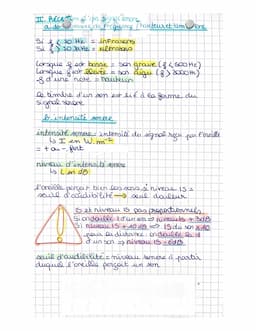 Si f < 20 Hz = infrasons
Si f > 20 kHz = ultrasons
Lorsque f est basse = son grave
Lorsque f est élevée = son aigu
f d'une note = hauteur
Le timbre d'un son est lié à la forme du
signal sonore
b. intensité sonore
intensité sonore = intensité du signal reçu par l'oreille
↳ I en W.m⁻²
= + ou - fort
niveau d'intensité sonore
↳ L en dB
L'oreille perçoit
seuil d'audibilité → seuil douleur
I et niveau IS pas proportionnels
Si on double I d'un son ⇒ niveau IS + 3dB
Si niveau IS + 10 dB ⇒ IS du son x 10
pour la distance : on double la d
d'un son ⇒ niveau IS - 6dB
seuil d'audibilité = niveau sonore à partir
duquel l'oreille perçoit un son